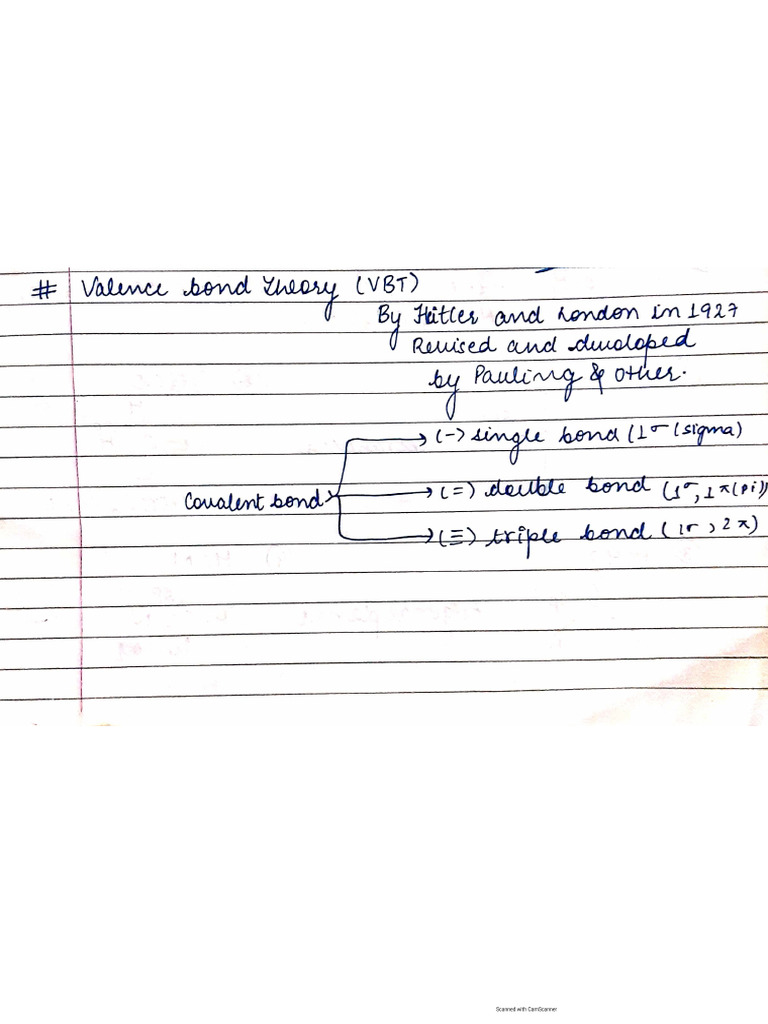 # Valence bond theory (VBT)
By Hitler and London in 1927
Revised and developed
by Pauling & other.
(-) single bond (1σ (sigma)
Covalent bond
(=) double bond (1σ, 1π(pi))
(≡) triple bond (1σ, 2π)
Scanned with CamScanner